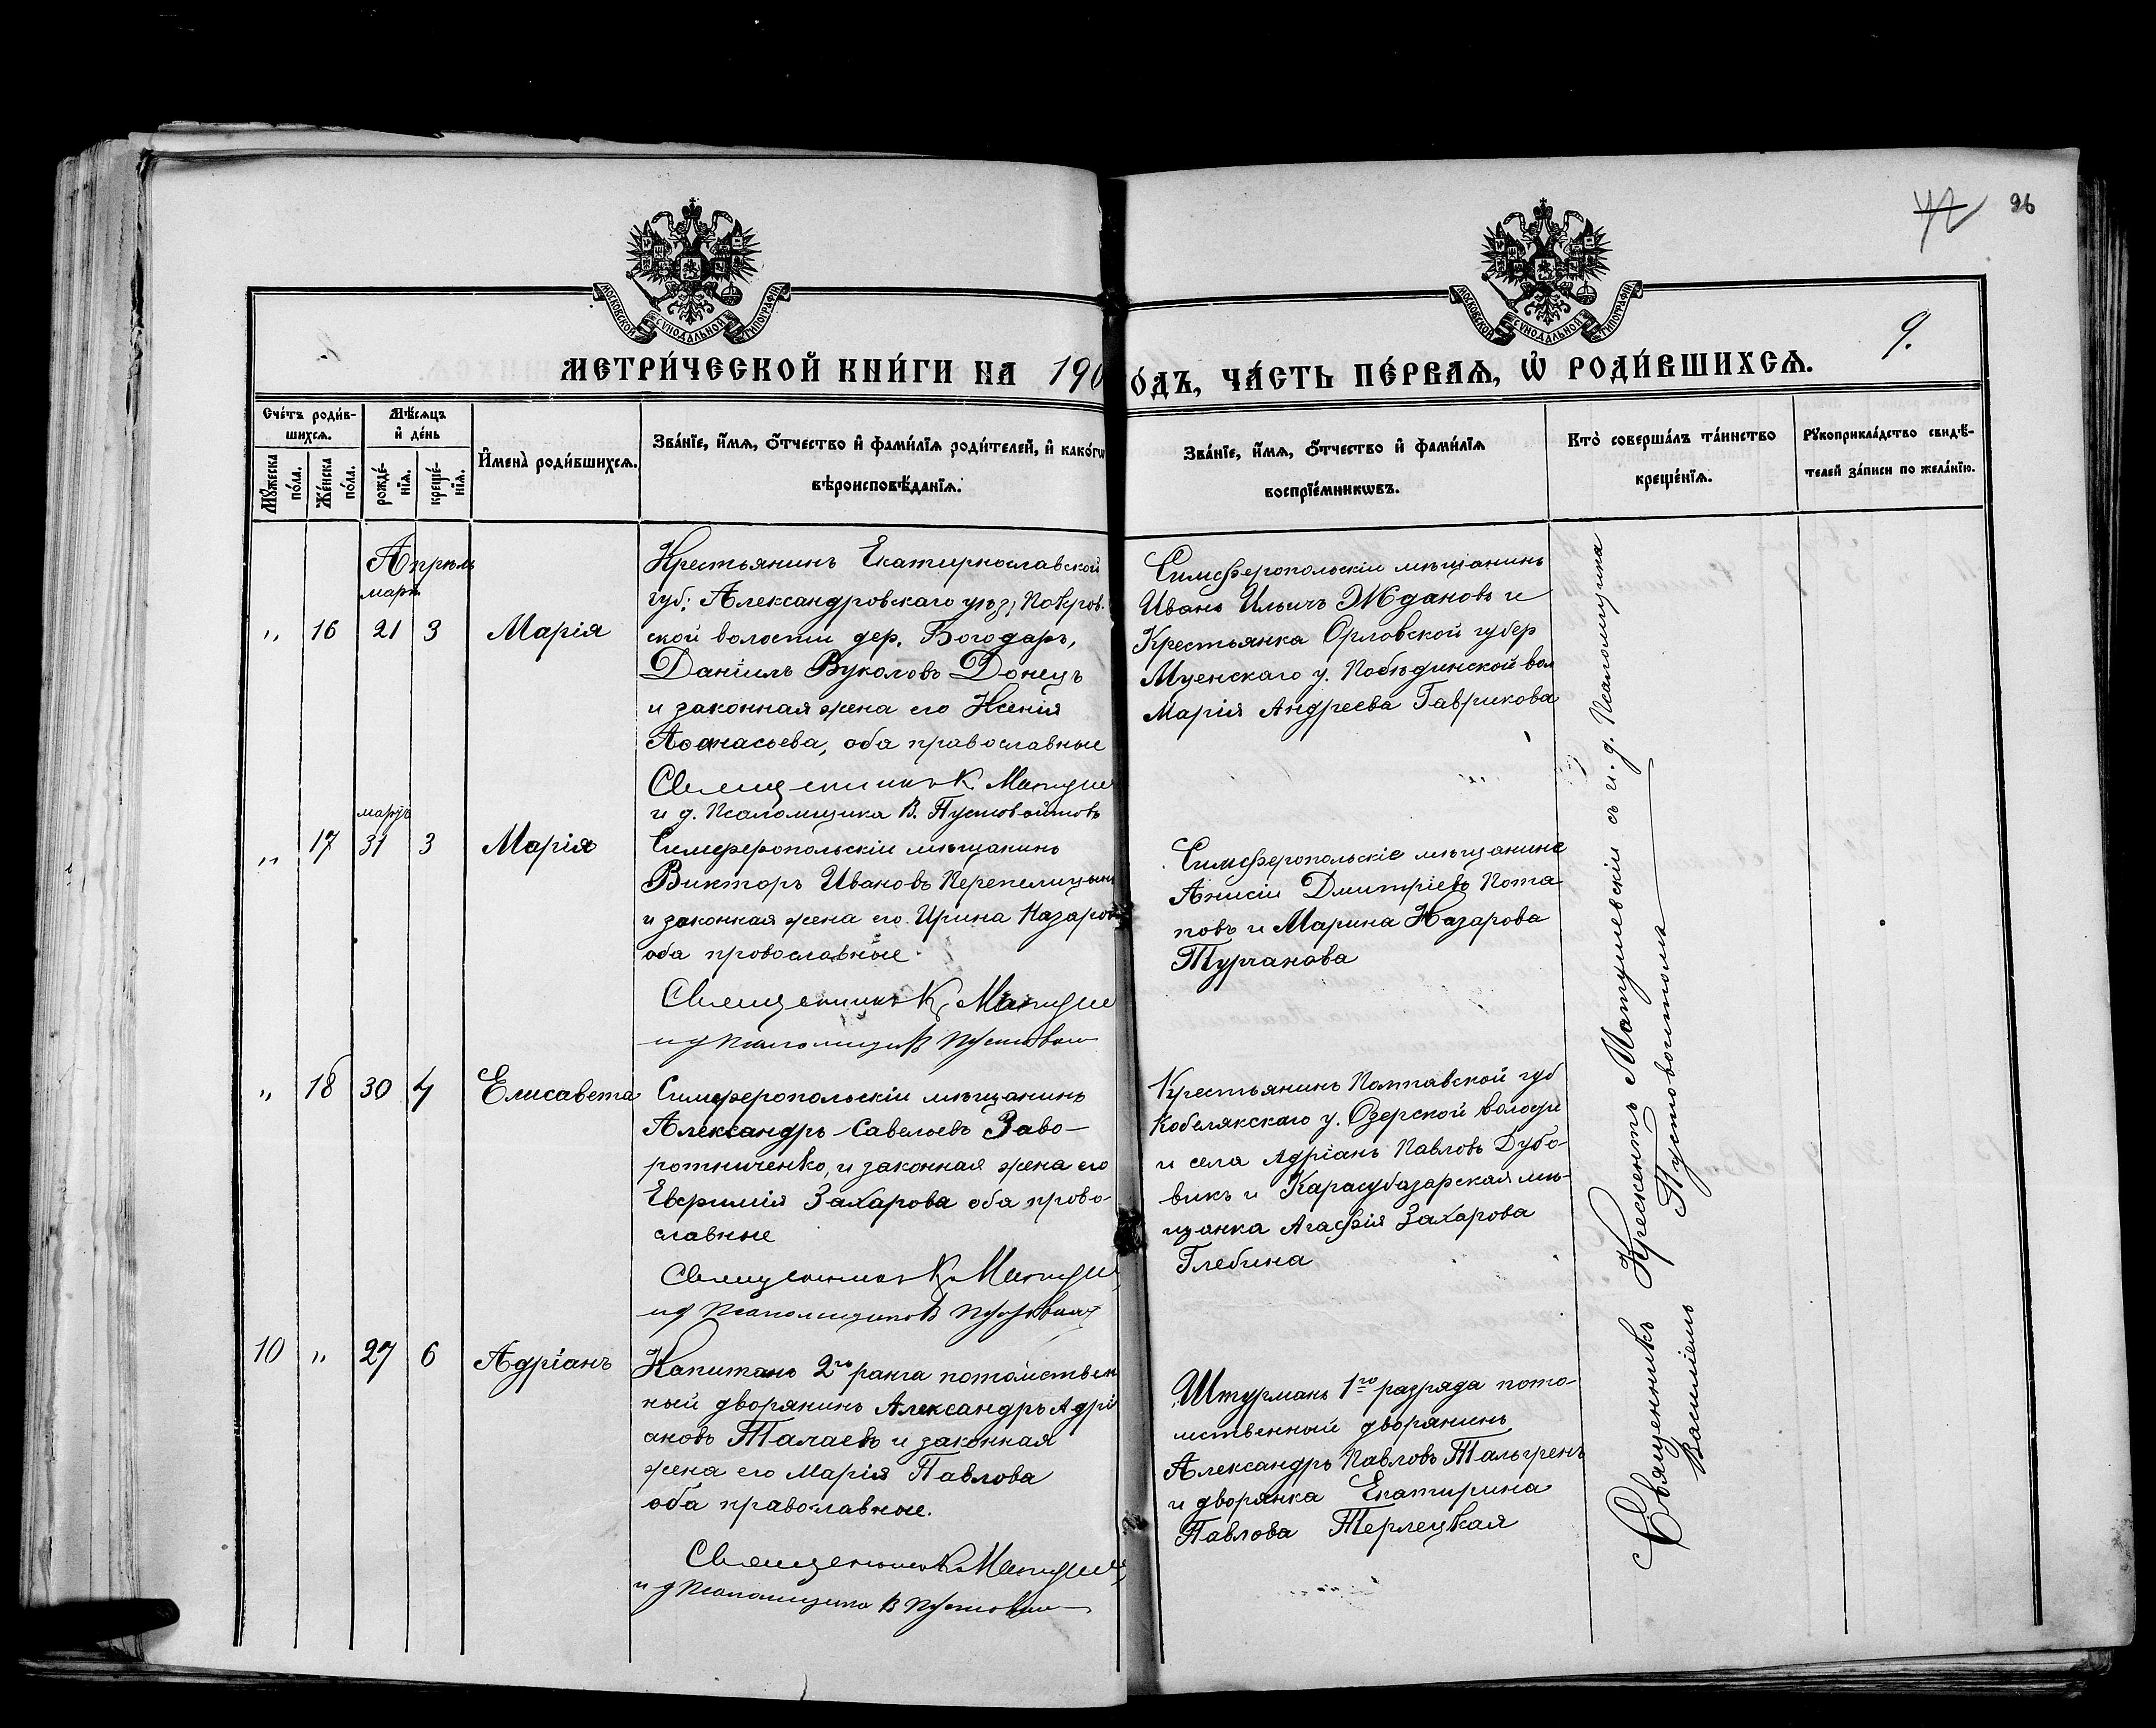 МОСКОВСКОЙ СУНОДАЛЬНОЙ ТИПОГРАФІИ
МОСКОВСКОЙ СУНОДАЛЬНОЙ ТИПОГРАФІИ
26
9.
МЕТРИ́ЧЕСКОЙ КНИ́ГИ НА 190
О́ДЪ, ЧА́СТЬ ПЕ́РВАѦ, Ѡ҆ РОДИ́ВШИХСѦ.
Сче́тъ роди́в-
шихсѧ.
Мѣ́сѧцъ
и҆ де́нь
Мꙋ́жеска
по́ла.
Же́нска
по́ла.
рожде́-
нїѧ.
креще́-
нїѧ.
И҆мена̀ роди́вшихсѧ.
Зва́нїе, и҆́мѧ, ѻ҆́тчество и҆ фами́лїѧ роди́телей, и҆ како́гѡ
вѣроисповѣ́данїѧ.
Зва́нїе, и҆́мѧ, ѻ҆́тчество и҆ фами́лїѧ
воспрїе́мникѡвъ.
Кто̀ соверша́лъ та́инство
креще́нїѧ.
Рꙋкоприкла́дство свидѣ́-
телей за́писи по жела́нїю.
Апрѣль
мартъ
„ 16 21 3 Марія
Крестьянинъ Екатирнославской
губ; Александровскаго уѣз, Покров.
ской волости дер. Богодаръ,
Даніилъ Вуколовъ Донецъ
и законная жена его Ксенія
Аѳанасьева, оба православные
Священникъ К. Матуше
и д. Псаломщика В. Пустовойтовъ
Симферопольскіи мѣщанинъ
Иванъ Ильичъ Ждановъ и
Крестьянка Орловской губер
Мценскаго у. Побѣдинской вол
Марія Андреева Гаврикова
мартъ
„ 17 31 3 Марія
Симферопольскіи мѣщанинъ
Викторъ Ивановъ Перепелицын
и законная жена его Ирина Назаров
оба провославные
Священникъ К. Матуше
и д Псаломщик В Пустовои
Симферопольскіе мѣщанине
Анисіи Дмитріевъ Пота
повъ и Марина Назарова
Турчанова
„ 18 30 4 Елисавета
Симферопольскіи мѣщанинъ
Александръ Савельевъ Заво-
ротниченко, и законная жена его
Евфимія Захарова оба право-
славные
Священникъ К. Матуше
и д Псаломщика В Пустовоит
Крестьянинъ Полтавской губ
Кобелякскаго у. Озерской волости
и села Адріанъ Павловъ Дубо-
викъ и Карасубазарская мѣ-
щанка Агафія Захарова
Глебина
10 „ 27 6 Адріанъ
Капитанъ 2го ранга потомствен
ный дворянинъ Александръ Адрі
ановъ Талаевъ и законная
жена его Марія Павлова
оба православные.
Священникъ К. Матуше
и д Псаломщика В Пустовои
Штурманъ 1го разряда пото-
мственный дворянинъ
Александръ Павловъ Тальгренъ
и дворянка Екатирина
Павлова Терлецкая
Священникъ Крескентъ Матушевскіи съ и. д. Псаломщика
Василіемъ Пустовоитомъ